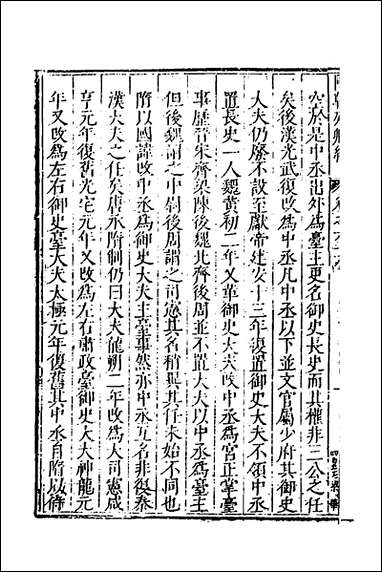 空於是中丞出外爲臺主更名御史長史而其權非三公之任
矣後漢光武復改爲中丞凡中丞以下並文官屬少府其御史
大夫仍廢不設至獻帝建安十三年復置御史大夫不領中丞
置長史一人魏黄初二年又革御史大夫改中丞爲宫正掌臺
事歷晉宋齊梁陳後魏北齊後周並不置大夫以中丞爲臺主
但後魏謂之中尉後周謂之司憲其名稍異其任未始不同也
隋以國諱改中丞爲御史大夫主臺事然亦中丞互名非復秦
漢大夫之任矣唐承隋制仍曰大夫龍朔二年改爲大司憲咸
亨元年復舊光宅元年又改爲左右肅政臺御史大夫神龍元
年又改爲左右御史臺大夫太極元年復舊其中丞自隋以待